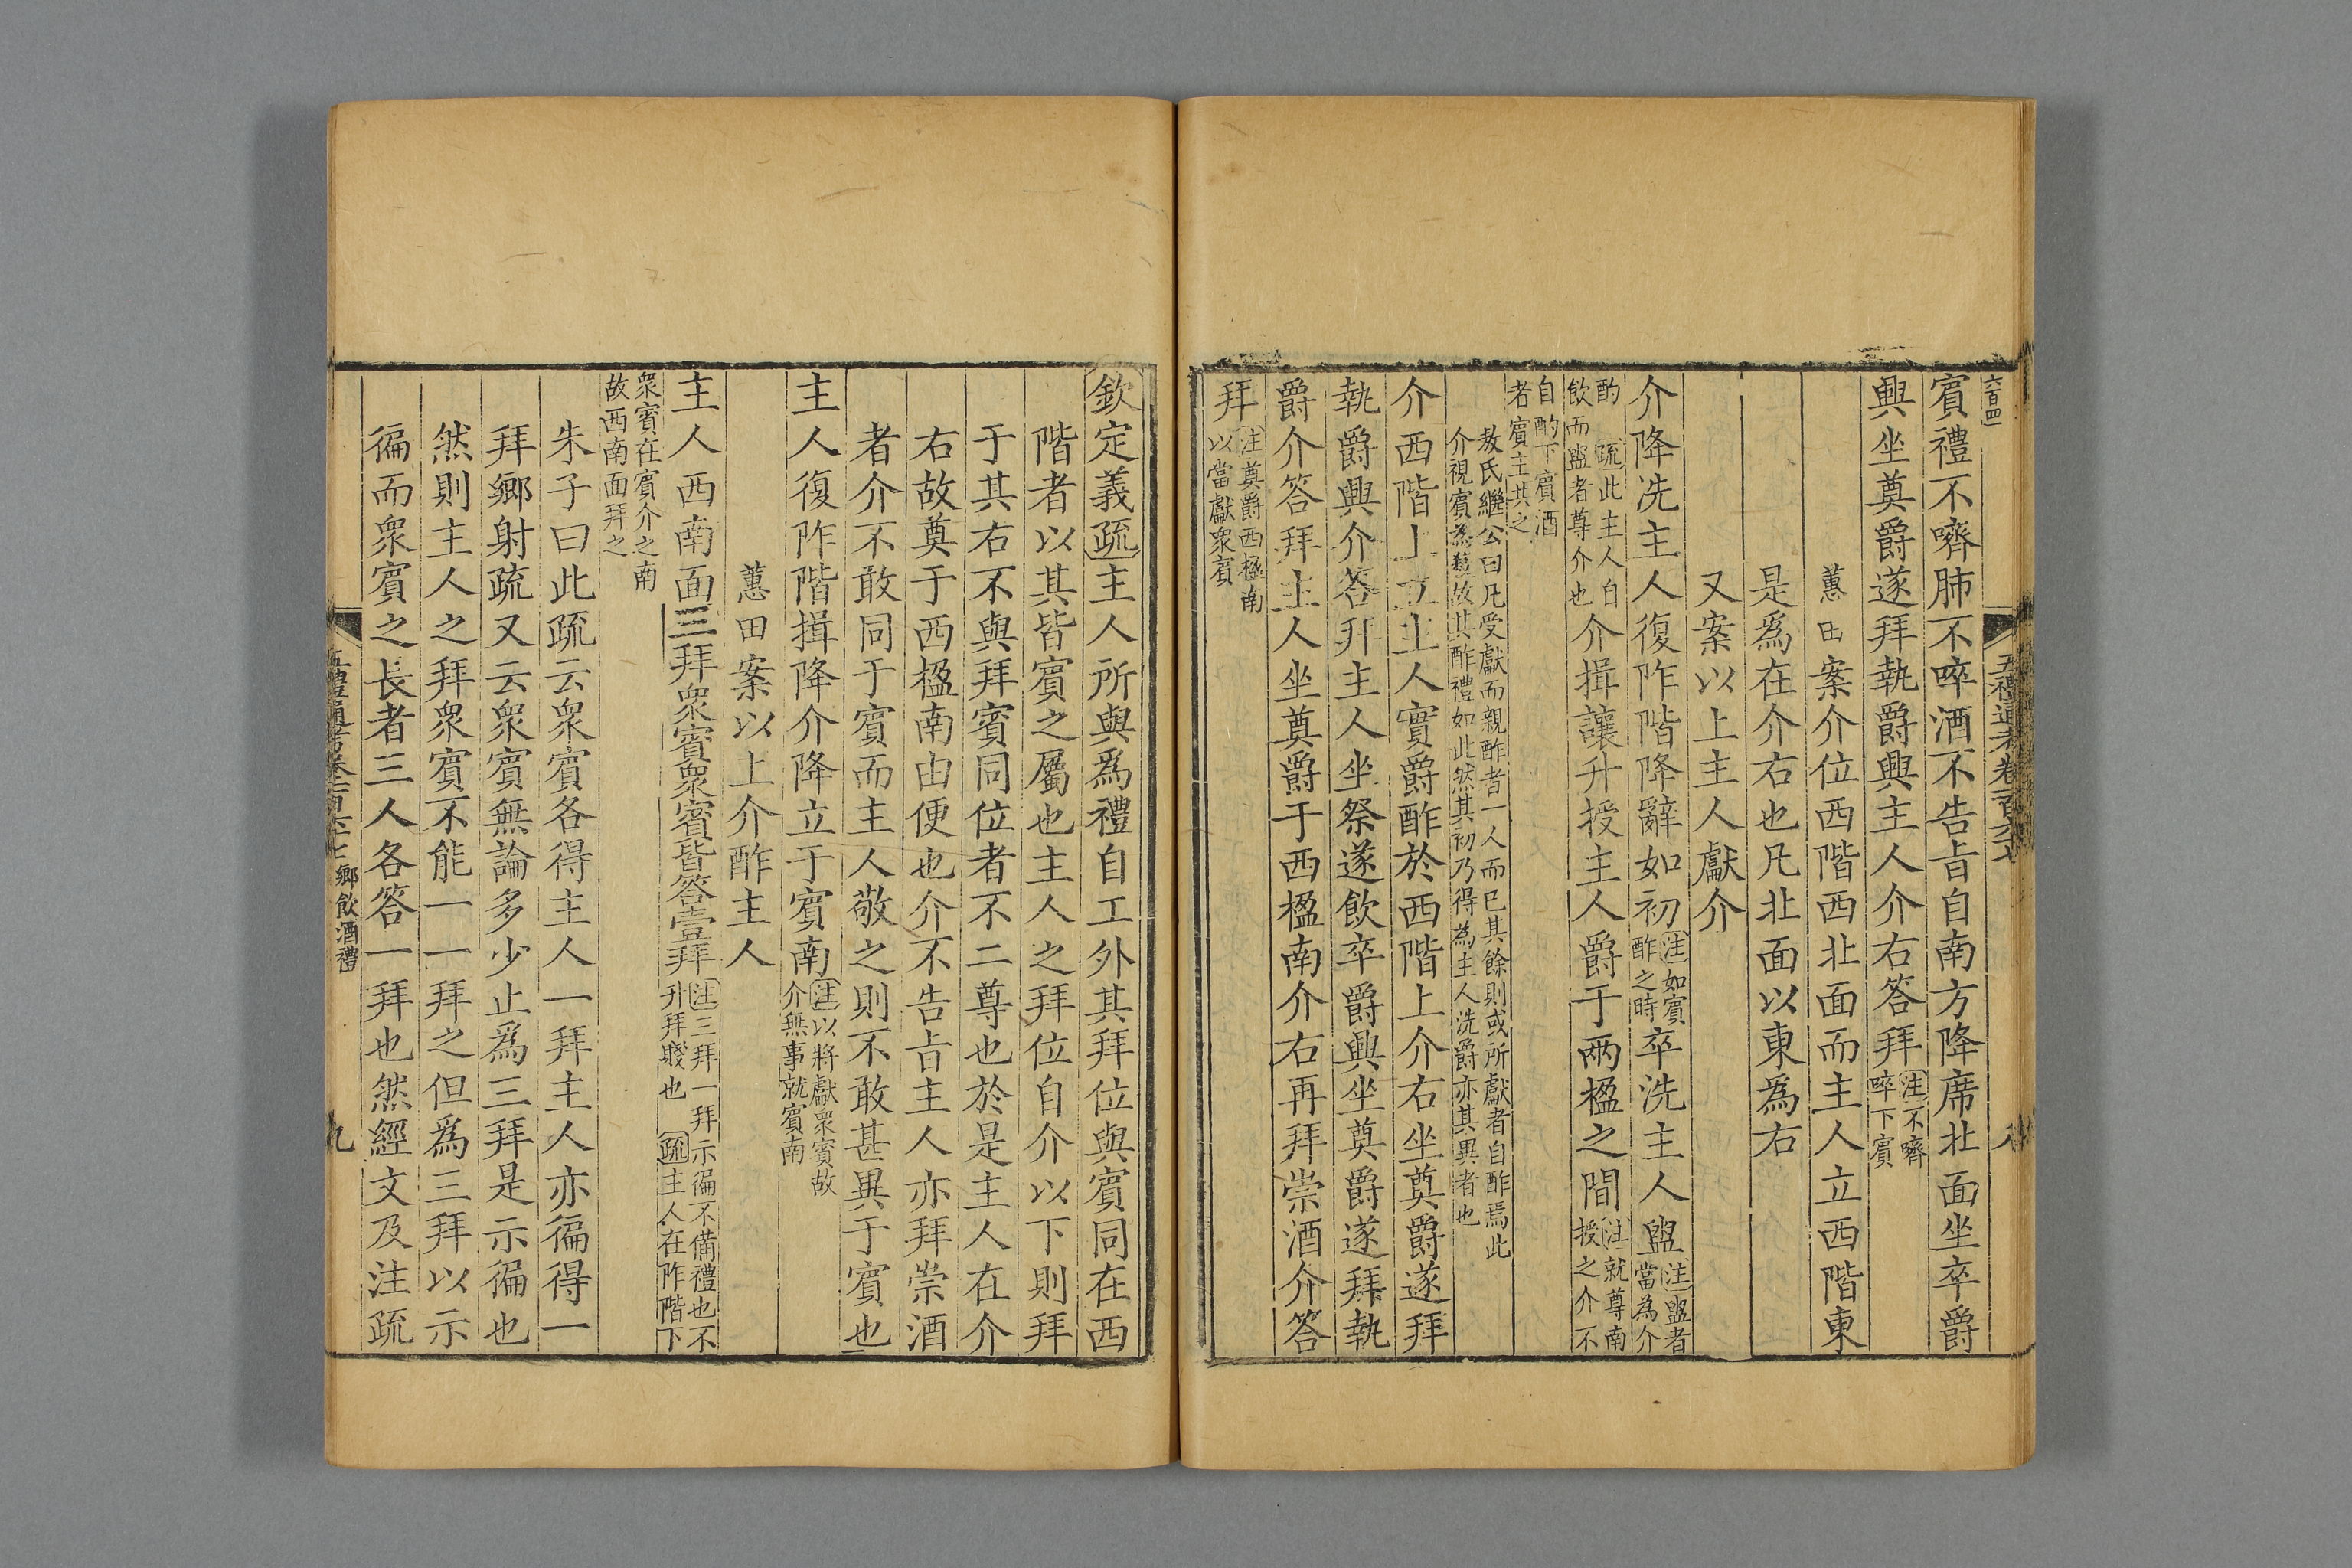 六百四
賓禮不嚌肺不啐酒不告旨自南方降席北面坐卒爵
興坐奠爵遂拜執爵興主人介右答拜注不嚌啐下賓
蕙田案介位西階西北面而主人立西階東
是爲在介右也凡北面以東爲右
又案以上主人獻介
介降洗主人復阼階降辭如初注如賓酢之時卒洗主人盥注盥者當為介
酌疏此主人自飲而盥者尊介也介揖讓升授主人爵于兩楹之間注就尊南授之介不
自酌下賓酒者賓主共之
敖氏繼公曰凡受獻而親酢者一人而已其餘則或所獻者自酢焉此
介視賓為故其酢禮如此然其初乃得為主人洗爵亦其異者也
介西階上立主人實爵酢於西階上介右坐奠爵遂拜
執爵興介答拜主人坐祭遂飲卒爵興坐奠爵遂拜執
爵介答拜主人坐奠爵于西楹南介右再拜崇酒介答
拜注奠爵西楹南以當獻衆賓
欽定義疏主人所與爲禮自工外其拜位與賓同在西
階者以其皆賓之屬也主人之拜位自介以下則拜
于其右不與拜賓同位者不二尊也於是主人在介
右故奠于西楹南由便也介不告旨主人亦拜崇酒
者介不敢同于賓而主人敬之則不敢甚異于賓也
主人復阼階揖降介降立于賓南注以將獻衆賓故介無事就賓南
蕙田案以上介酢主人
主人西南面三拜衆賓衆賓皆答壹拜注三拜一拜示徧不備禮也不升拜賤也疏主人在阼階下
衆賓在賓介之南故西南面拜之
朱子曰此疏云衆賓各得主人一拜主人亦徧得一
拜鄉射疏又云衆賓無論多少止爲三拜是示徧也
然則主人之拜衆賓不能一一拜之但爲三拜以示
徧而衆賓之長者三人各答一拜也然經文及注疏
五禮通考卷一百六十七 鄉飲酒禮
九